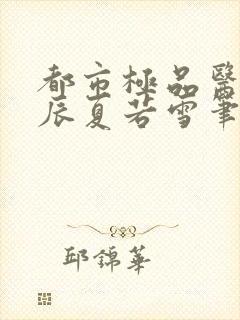 都市極品醫
辰夏若雪筆
邱錦華